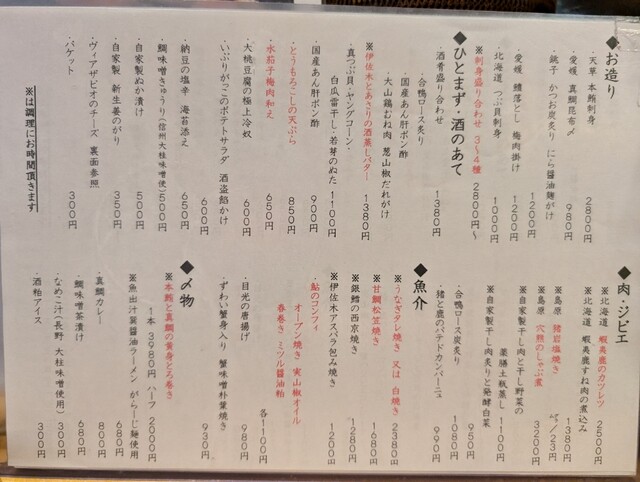 ◆お造り
・天草 本鮪刺身 2800円
・愛媛 真鯛昆布〆 980円
・銚子 かつお炭炙り にら醤油麹がけ 1200円
・愛媛 鱧落とし 梅肉掛け 1200円
・北海道 つぶ貝刺身 1000円
※刺身盛り合わせ 3〜4種 2800円〜
◆ひとまず、酒のあて
・酒肴盛り合わせ 1380円
・合鴨ロース炙り
・国産あん肝ポン酢
・大山鶏むね肉 葱山椒だれがけ
※伊佐木とあさりの酒蒸しバター 1380円
・真つぶ貝・ヤングコーン・
白瓜雷干し・若芽のぬた 1100円
・国産あん肝ポン酢 900円
・とうもろこしの天ぷら 850円
・水茄子梅肉和え 650円
・大桃豆腐の極上冷奴 600円
・いぶりがっこのポテトサラダ 酒盗餡かけ 600円
・納豆の塩辛 海苔添え 650円
・鯛味噌きゅうり(信州大桂味噌使) 500円
・自家製ぬか漬け 500円
・自家製 新生姜のがり 350円
・ヴィアザビオのチーズ 裏面参照
・バケット 300円
※は調理にお時間頂きます
◆肉・ジビエ
※北海道 蝦夷鹿のカツレツ 2500円
※北海道 蝦夷鹿すね肉の煮込み 1380円
※島原 猪岩塩焼き
※島原 穴熊のしゃぶ煮 3200円
※自家製干し肉と干し野菜の
薬膳土瓶蒸し 1100円
※自家製干し肉炙りと発酵白菜 950円
・合鴨ロース炭炙り 990円
・猪と鹿のパテドカンパーニュ
◆魚介
※うなぎタレ焼き 又は 白焼き 2380円
※甘鯛松笠焼き 1680円
※銀鱈の西京焼き 1280円
※伊佐木アスパラ包み焼き 1200円
・鮎のコンフィ
オーブン焼き 実山椒オイル
春巻き ミツル醤油粕 各1100円
・目光の唐揚げ 980円
・ずわい蟹身入り 蟹味噌朴葉焼き 930円
◆〆物
※本鮪と真鯛の黄身とろ巻き
1本 3980円 ハーフ 2000円
※魚出汁淡醤油ラーメン がらーじ麺使用 680円
・真鯛カレー 800円
・鯛味噌茶漬け 680円
・なめこ汁(長野 大桂味噌使用) 300円
・酒粕アイス 300円